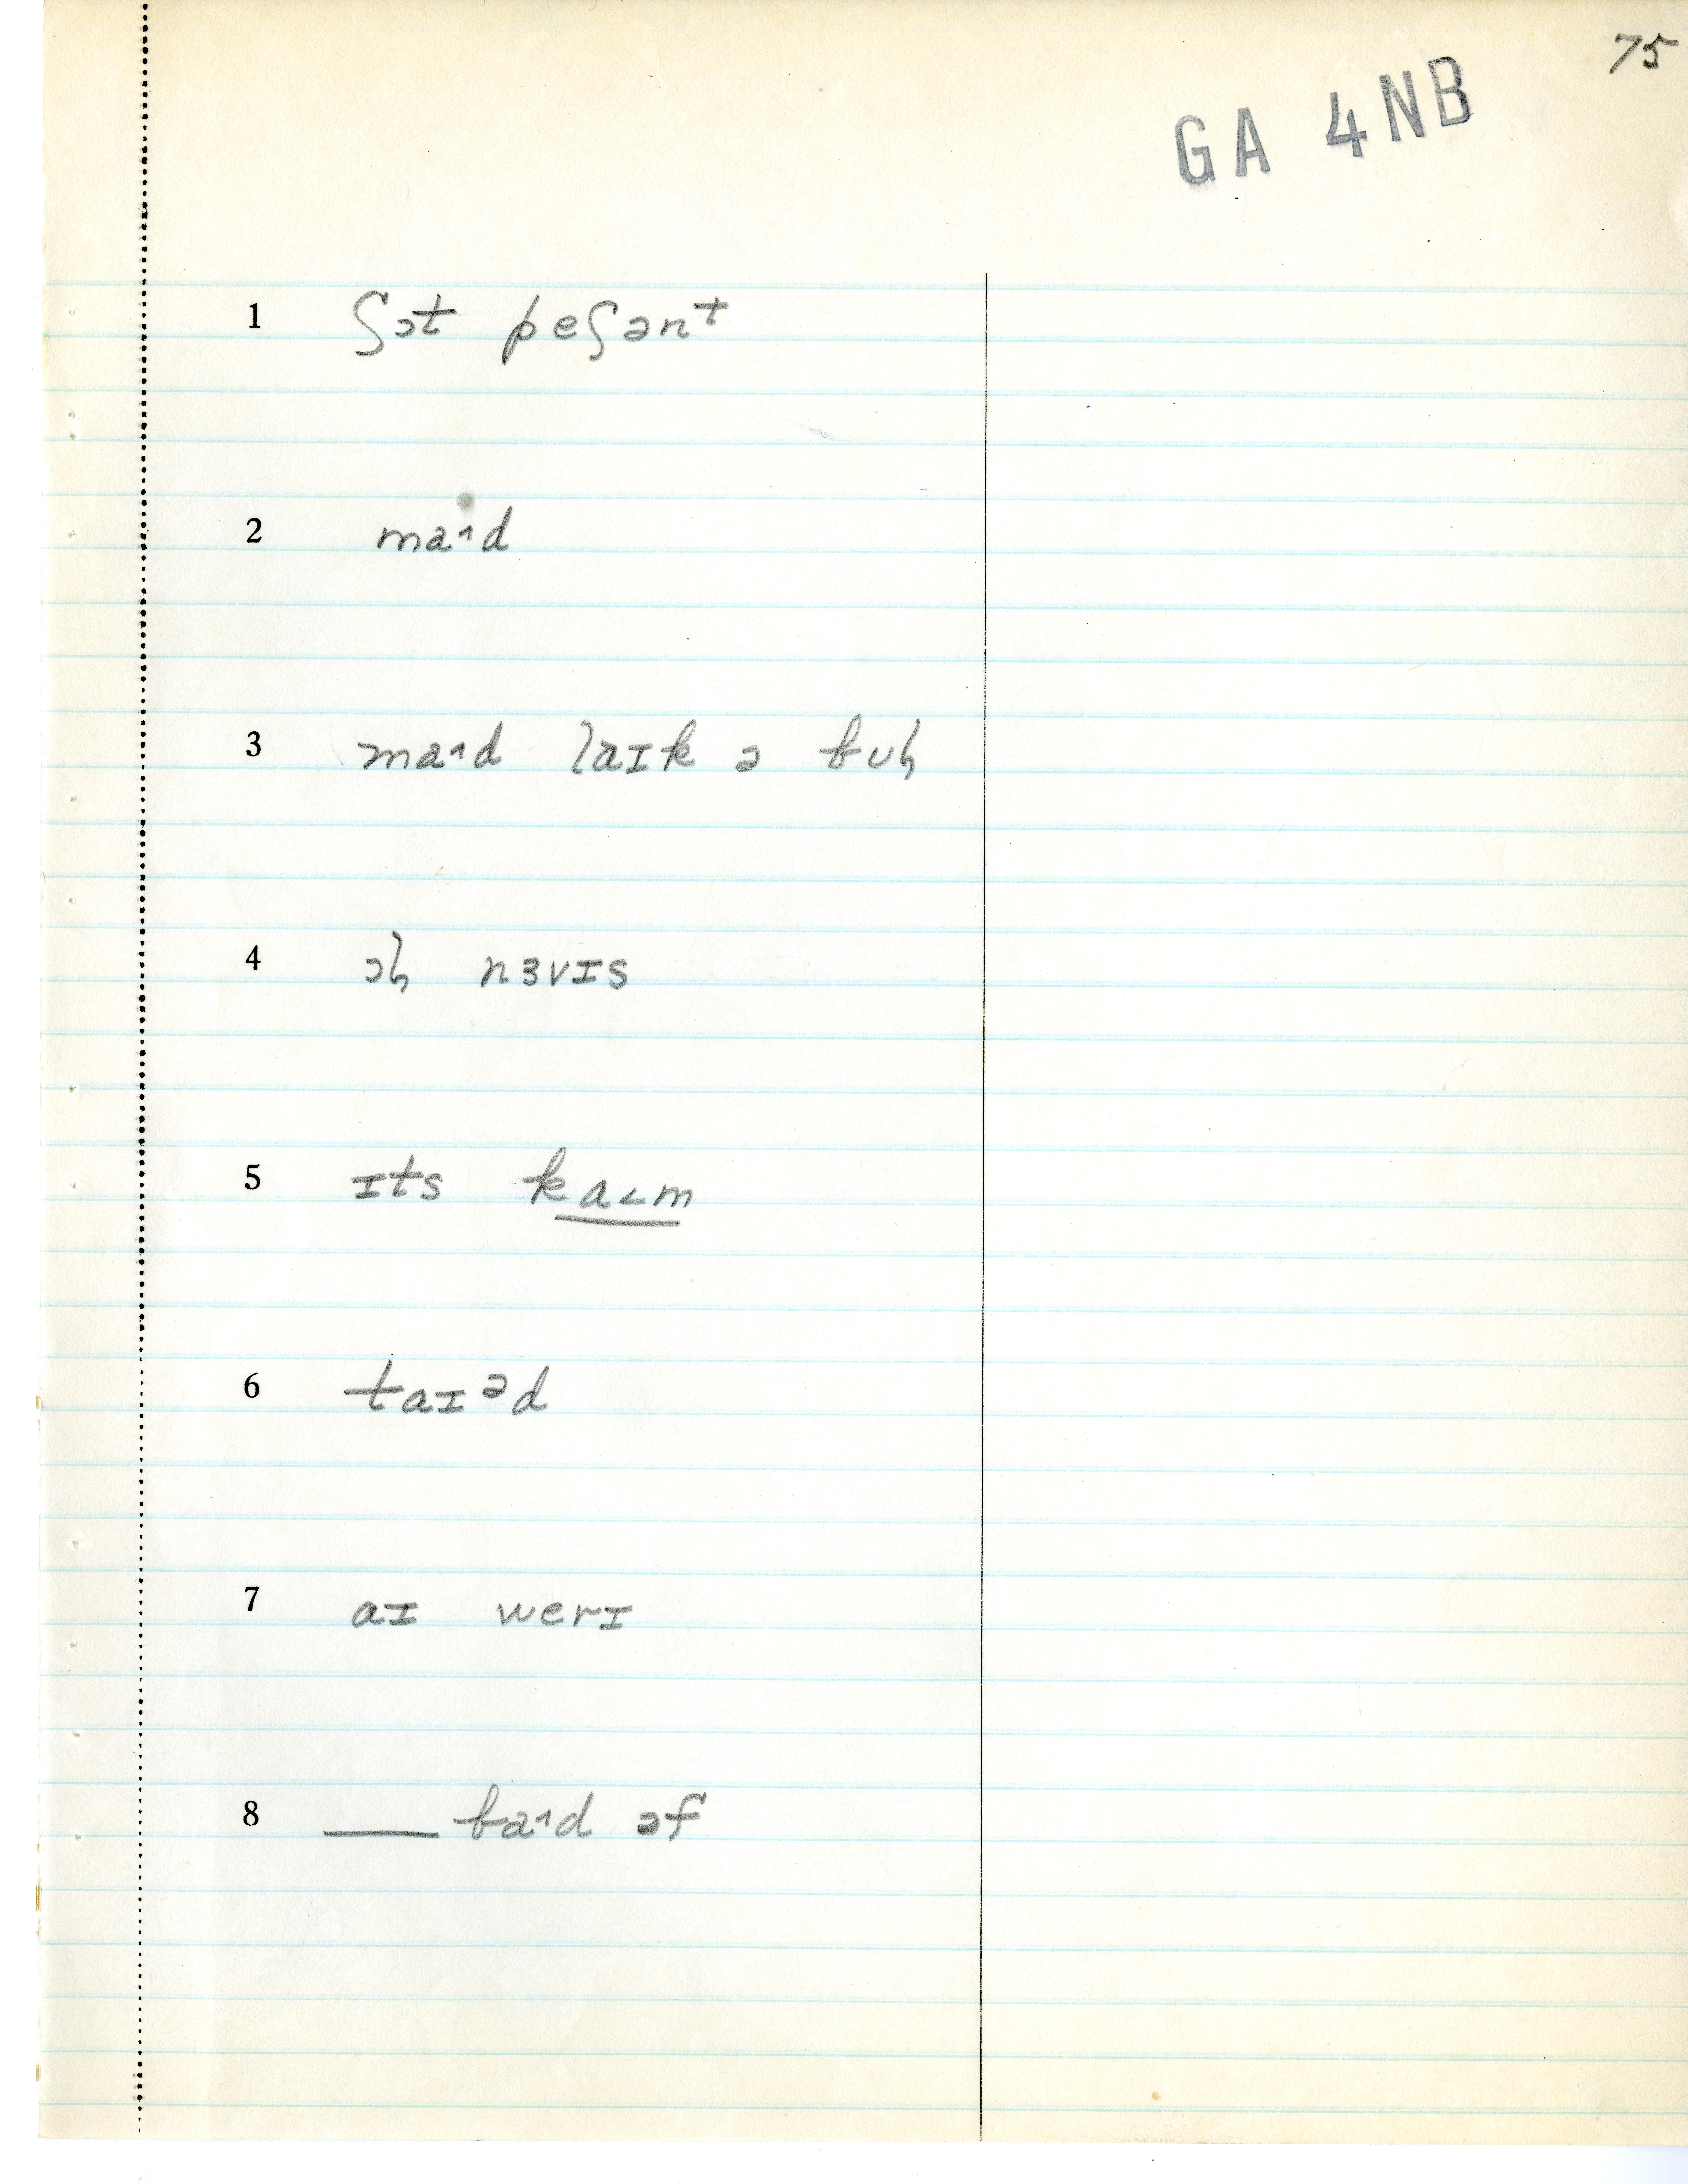 75
GA 4NB
1 ʃɔt peʃənᵗ
2 maᶦd
3 maᶦd laɪk ə fuɫ
4 ɔɫ nɜvɪs
5 ɪts ka˂m
6 taɪᵊd
7 aɪ werɪ
8 ___ baᶦd əf